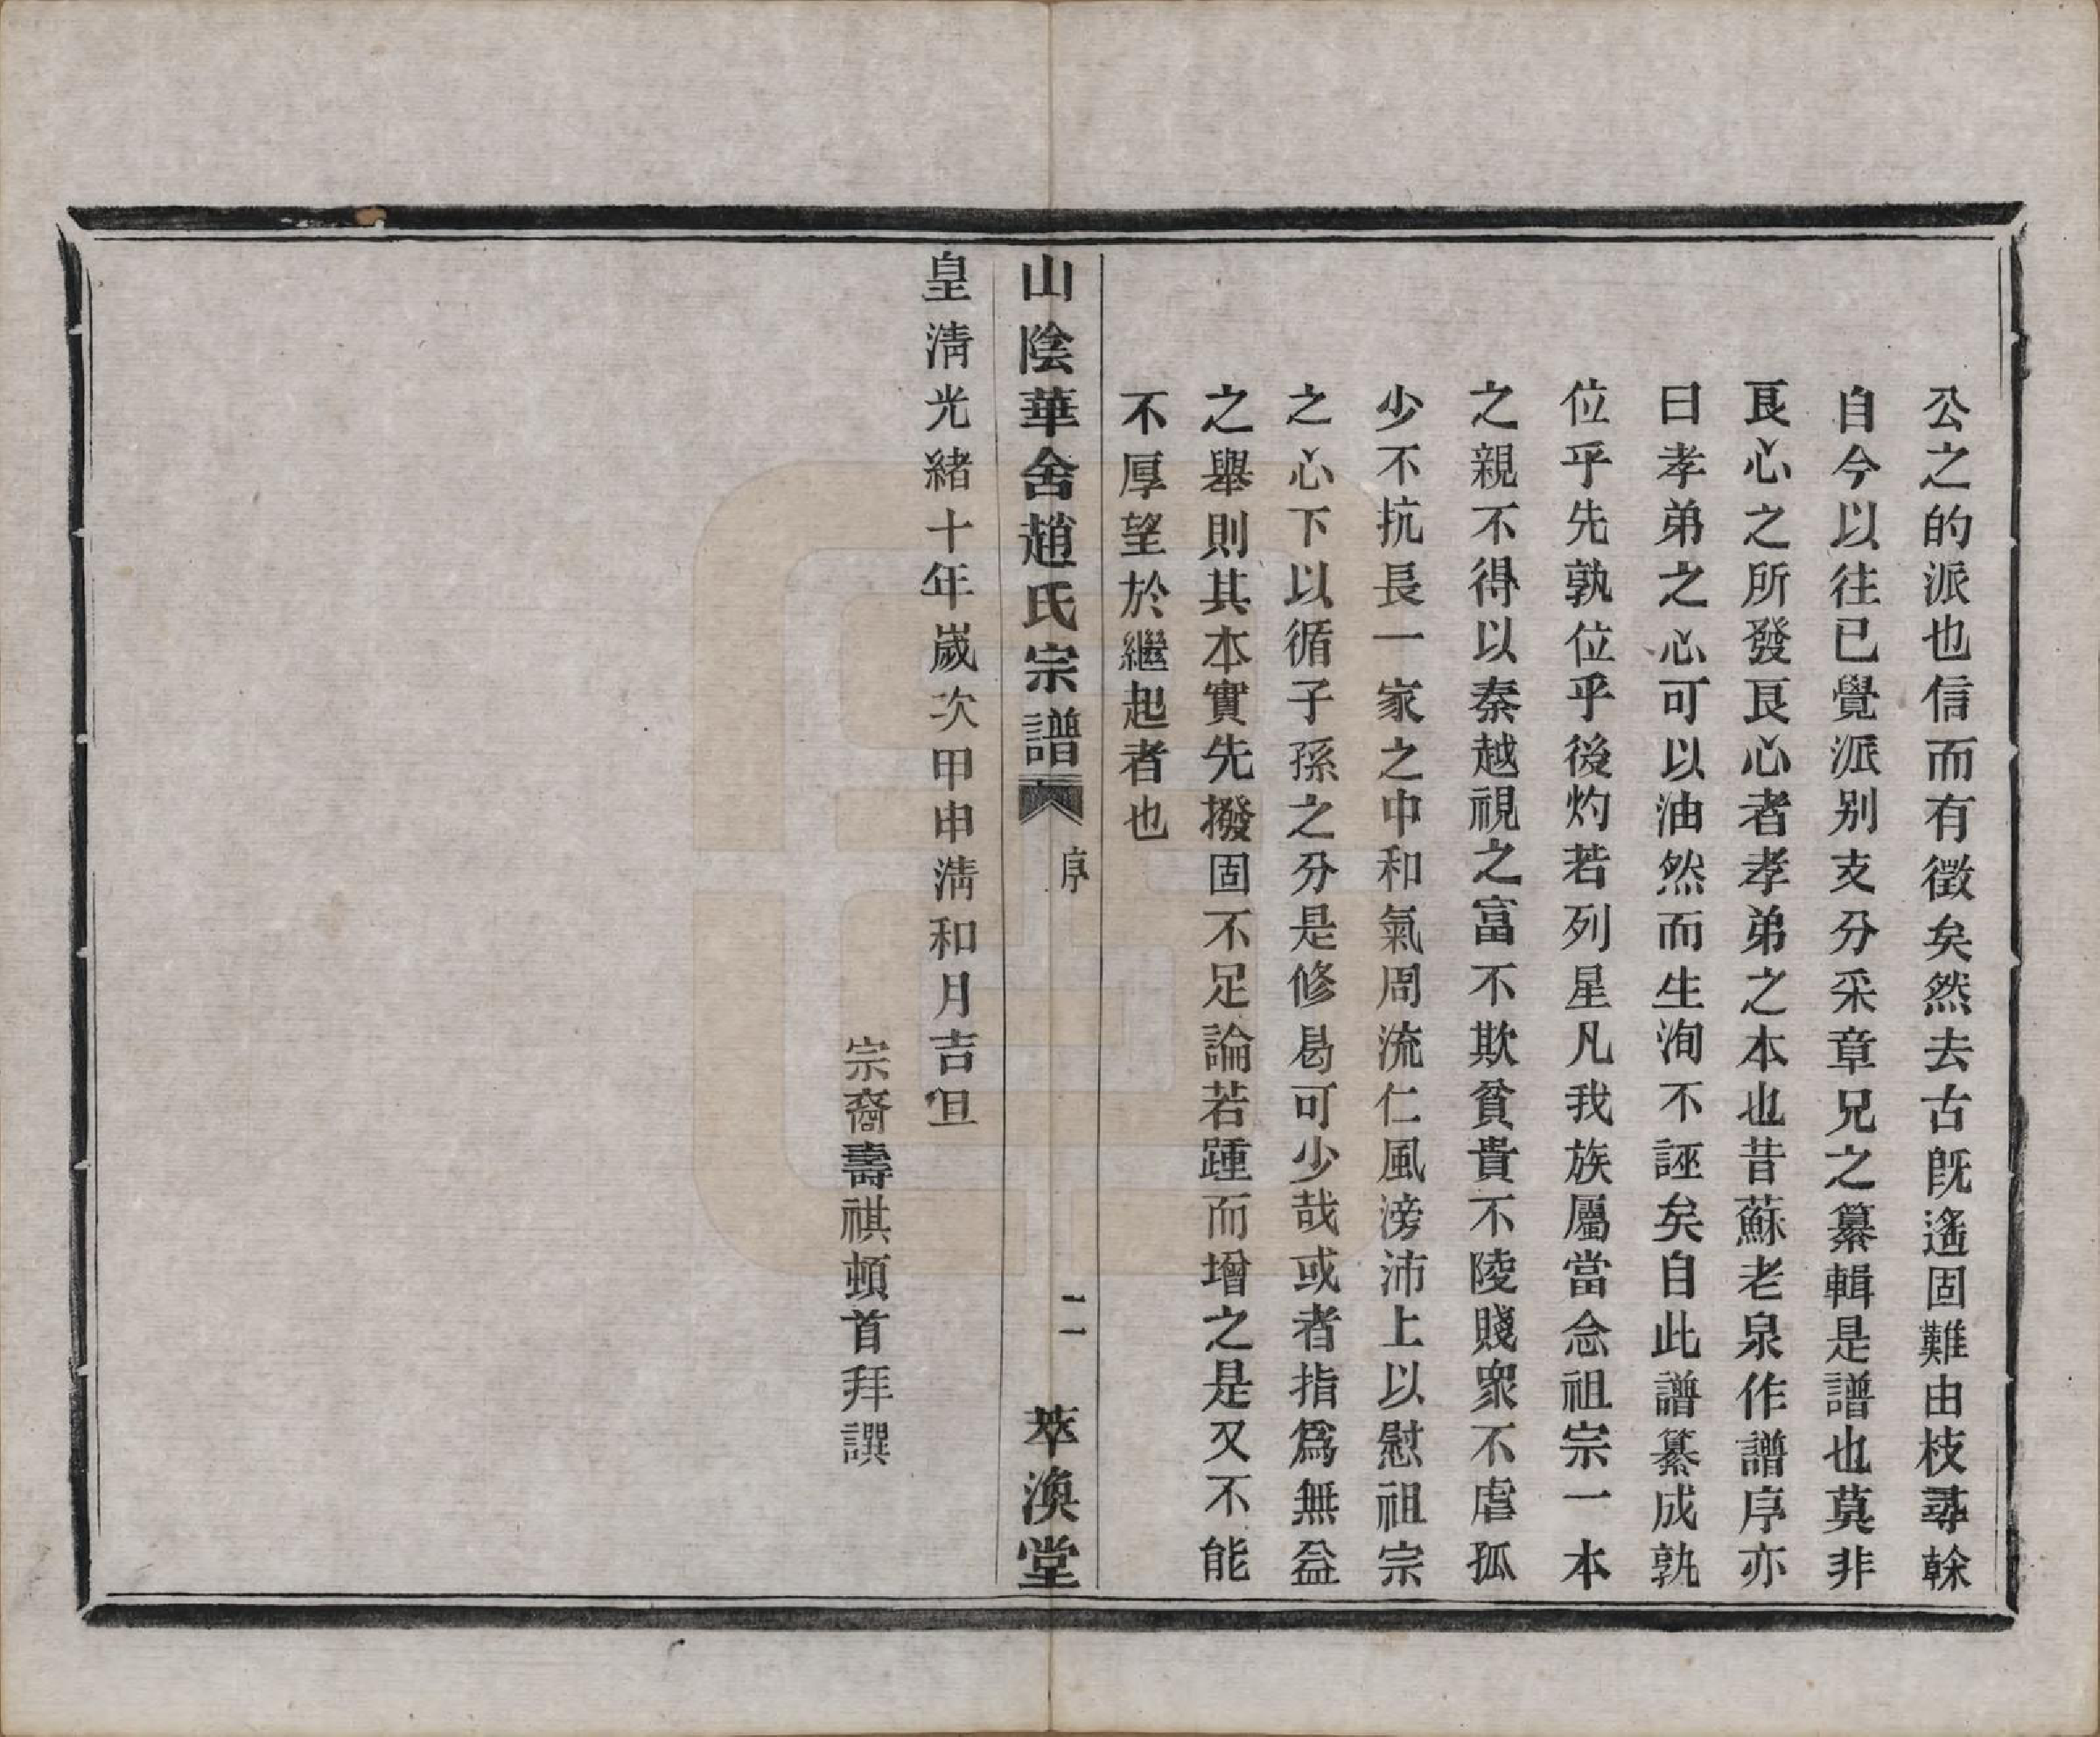 公之的派也信而有徵矣然去古旣遙固難由枝尋榦
自今以往已覺派别支分采章兄之纂輯是譜也莫非
良心之所發良心者孝弟之本也昔蘇老泉作譜序亦
曰孝弟之心可以油然而生洵不誣矣自此譜纂成孰
位乎先孰位乎後灼若列星凡我族屬當念祖宗一本
之親不得以秦越視之富不欺貧貴不陵賤衆不虐孤
少不抗長一家之中和氣周流仁風滂沛上以慰祖宗
之心下以循子孫之分是修曷可少哉或者指爲無益
之舉則其本實先撥固不足論若踵而增之是又不能
不厚望於繼起者也
山陰華舍趙氏宗譜 序 二 萃渙堂
皇淸光緒十年歲次甲申淸和月吉旦
宗裔壽祺頓首拜譔